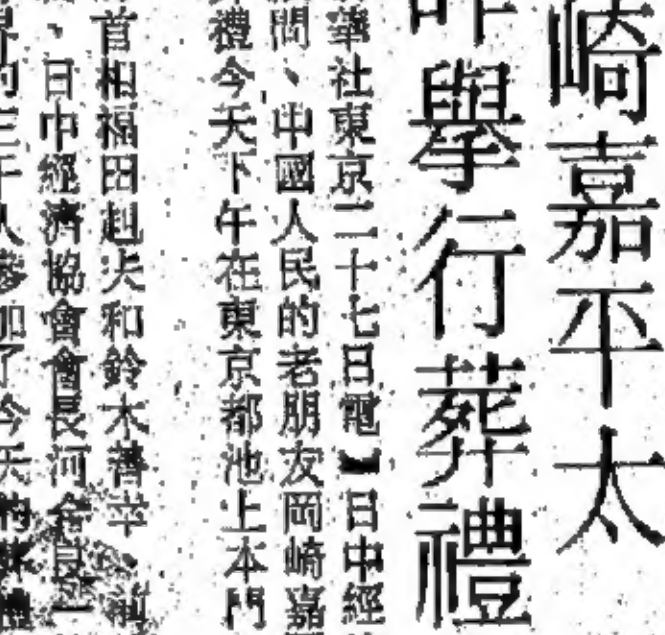 崎嘉平太
昨舉行葬禮
華社東京二十七日電】日中經
問、中國人民的老朋友岡崎嘉
禮今天下午在東京都池上本門
首相福田赳夫和鈴木善幸、前
、日中經濟協會會長河合良一
界的三千人參加了今天的葬禮